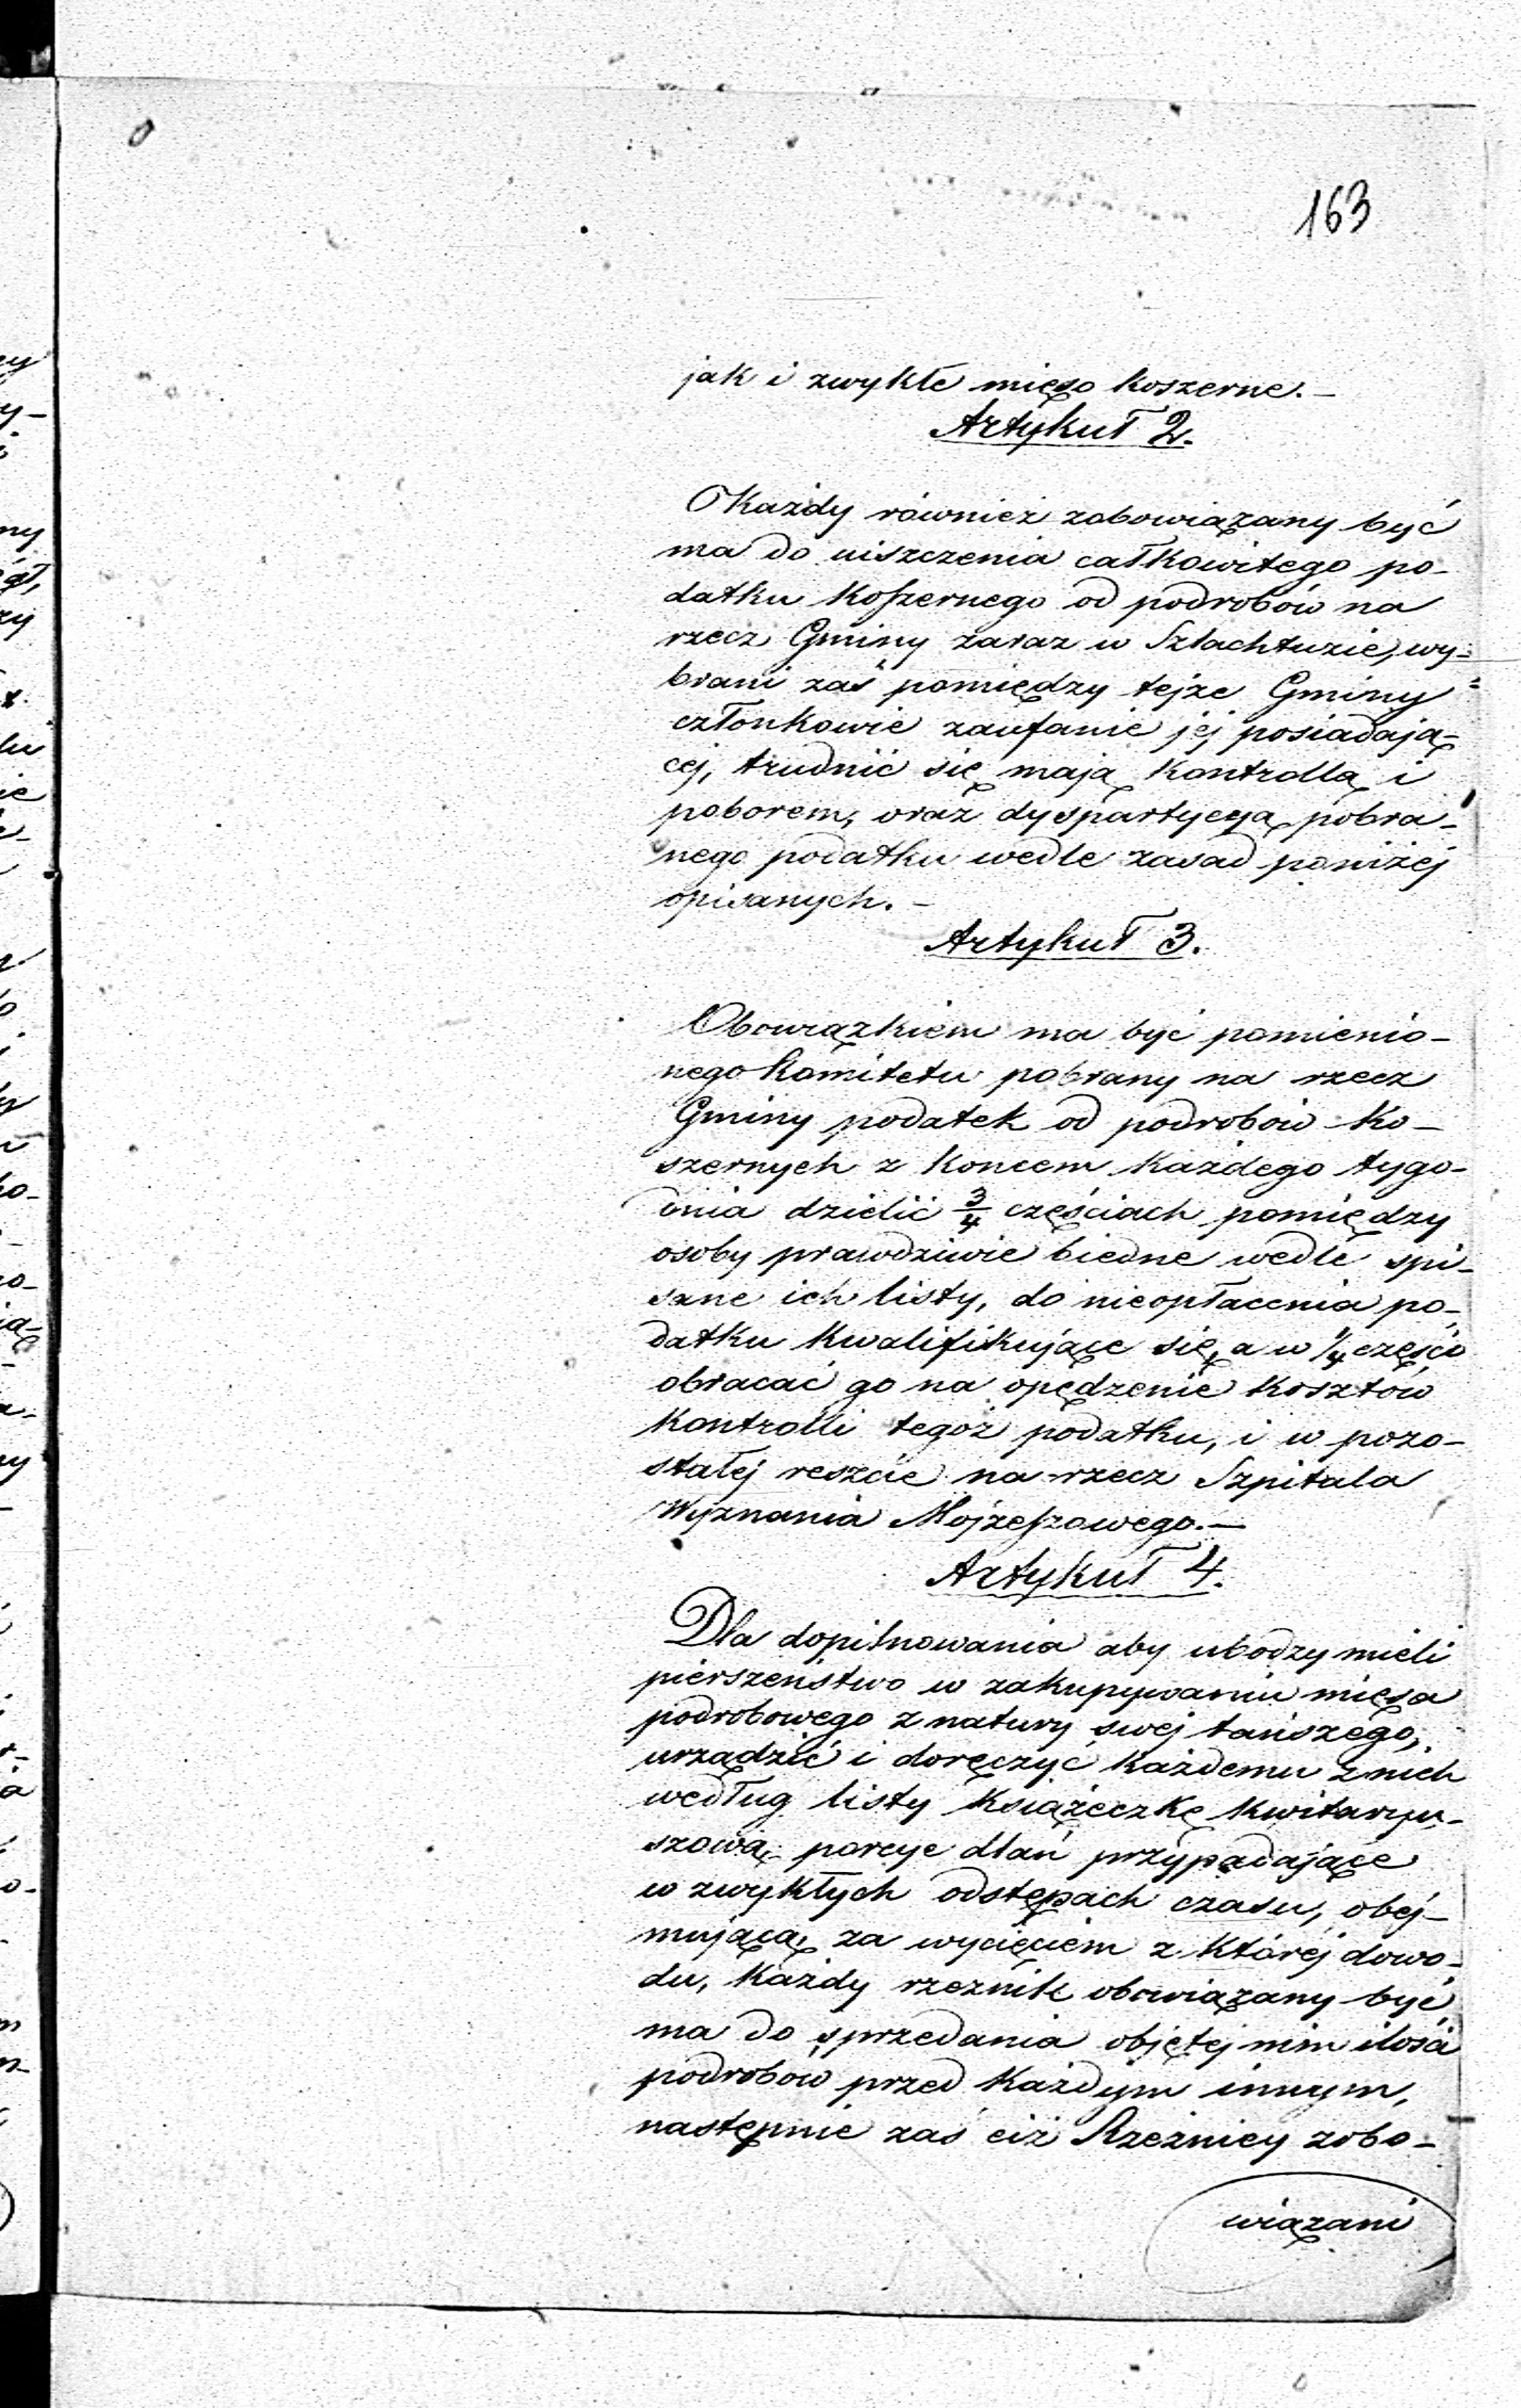 163
jak i zwykłe mięso koszerne.—
Artykuł 2.
Każdy również zobowiązany być
ma do uiszczenia całkowitego po-
datku koszernego od podrobów na
rzecz Gminy zaraz w Szlachtuzie, wy-
brani zaś pomiędzy tejże Gminy
członkowie zaufanie jej posiadają-
cej, trudnić się mają kontrollą i
poborem, oraz dyspartycyą pobra-
nego podatku wedle zasad poniżej
opisanych.—
Artykuł 3.
Obowiązkiem ma być pomienio-
nego Komitetu pobrany na rzecz
Gminy podatek od podrobów ko-
szernych z końcem każdego tygo-
dnia dzielić 3/4 częściach pomiędzy
osoby prawdziwie biedne wedle spi-
sane ich listy, do nieopłacenia po-
datku kwalifikujące się, a w 1/4 części
obracać go na opędzenie kosztów
kontrolli tegoż podatku, i w pozo-
stałej reszcie na rzecz Szpitala
Wyznania Mojżeszowego.—
Artykuł 4.
Dla dopilnowania aby ubodzy mieli
pierszeństwo w zakupywaniu mięsa
podrobowego z natury swej tańszego,
urządzić i doręczyć każdemu z nich
według listy książeczkę kwitaryu-
szową porcye dlań przypadające
w zwykłych odstępach czasu, obej-
mującą, za wycięciem z której dowo-
du, każdy rzeźnik obowiązany być
ma do sprzedania objętej nim ilości
podrobów przed każdym innym,
następnie zaś ciż Rzeźnicy zobo-
wiązani